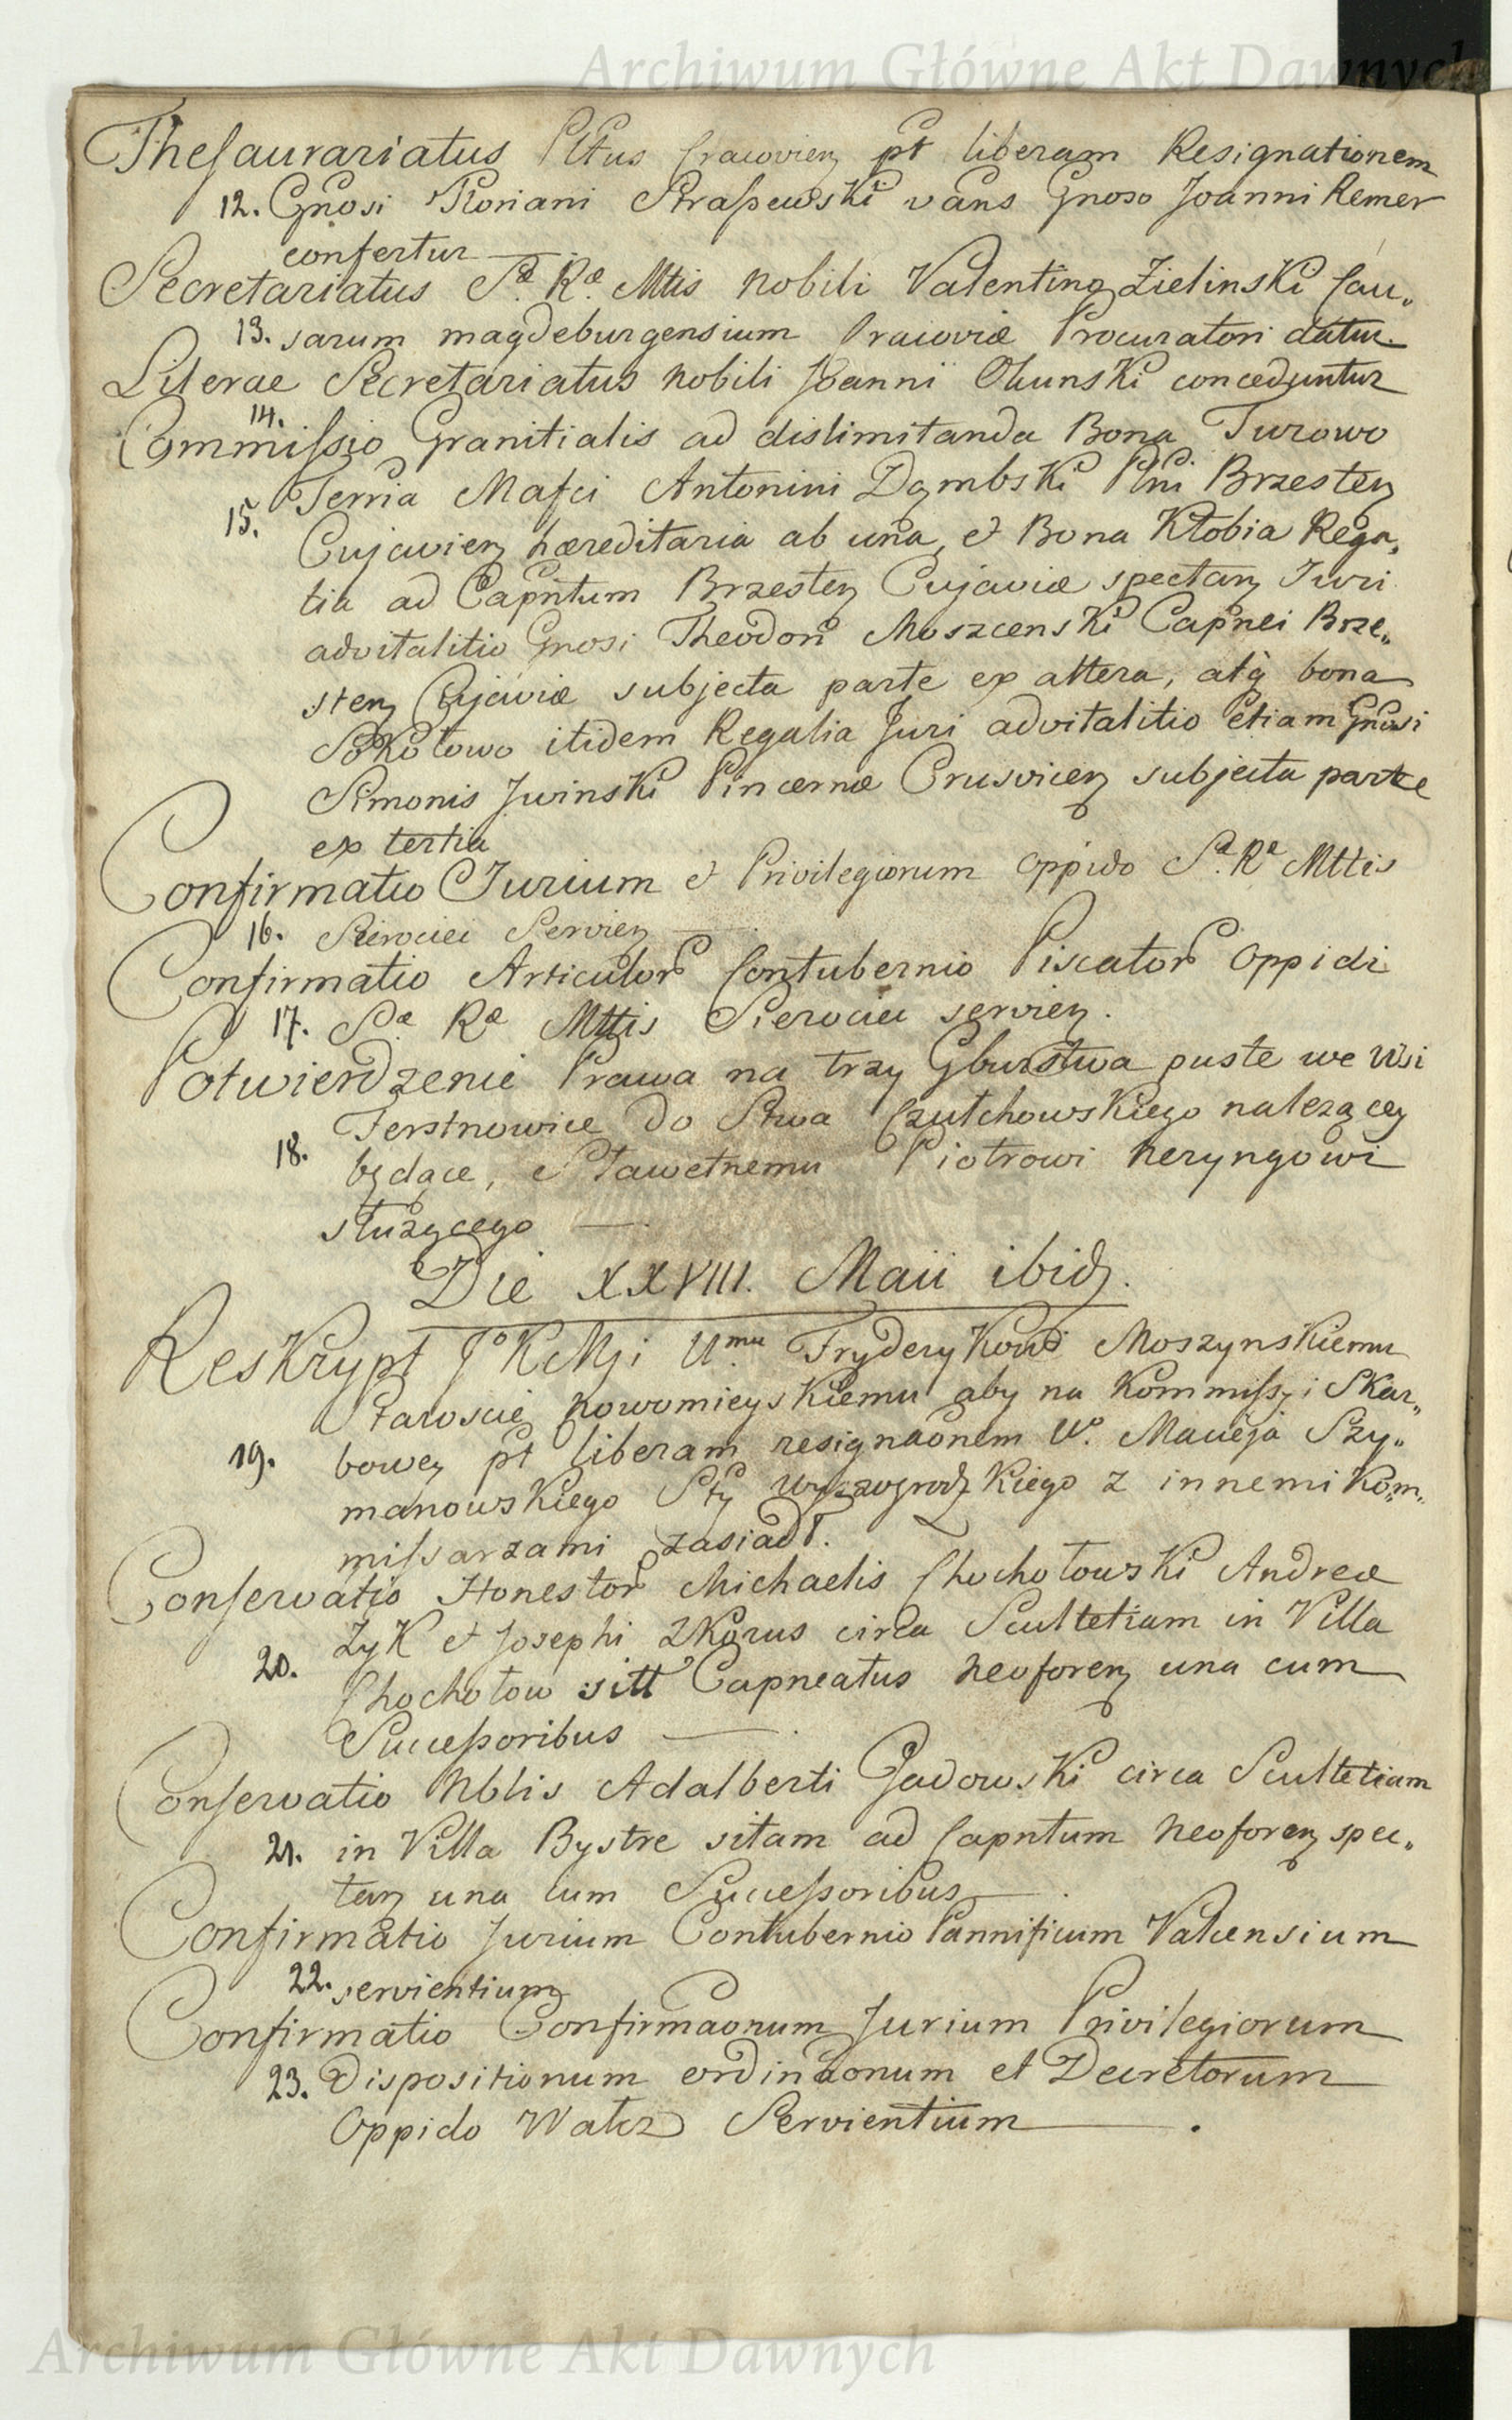 Archiwum Główne Akt Dawnych
Thesaurariatus Pltus Cracovien pt liberam Resignationem
12. Gnosi Floriani Straszewski vans Gnoso Joanni Remer
confertur
Secretariatus Sæ Ræ Mtis Nobili Valentino Zielinski Cau„
13. sarum magdeburgensium Cracoviæ Procuratori datur.
Literae Secretariatus Nobili Joanni Olunski conceduntur
14.
Commissio Granitialis ad dislimitanda Bona Turowo
Terria Mafci Antonini Dąmbski Plni Brzesten
15.
Cujavien hæreditaria ab una, et Bona Kłobia Rega„
lia ad Capntum Brzesten Cujaviæ spectan Juri
advitalitio Gnosi Theodori Moszcenski Capnei Brze„
sten Cujaviæ subjecta parte ex altera, atq bona
Sokołowo itidem Regalia Juri advitalitio etiam Gnosi
Simonis Jwinski Pincernæ Crusvicen subjecta parte
ex tertia
Confirmatio Jurium et Privilegiorum oppido Sæ Ræ Mttis
16. Skierociei Servien
Confirmatio Articulor Contubernio Piscator Oppidi
17. Sæ Ræ Mttis Sierociei servien.
Potwierdzenie Prawa na trzy Gburstwa puste we Wsi
Ferstnowice do Stwa Człuchowskiego nalezącey
18.
będące, Sławetnemu Piotrowi Heryngowi
służącego
Die XXVIII. Maii ibid.
Reskrypt Jo K Mci Umu Fryderykowi Moszynskiemu
Staroscie Nowomieyskiemu aby na Kommissyi Skar„
19. bowey pt liberam resignaonem Wo. Macieja Szy„
manowskiego Sty Wyszogrodzkiego z innemi Kom„
missarzami zasiadł.
Conservatio Honestor Michaelis Chochołowski Andreæ
Zyk et Josephi Zkorus circa Scultetiam in Villa
20.
Chochołow sitt Capneatus Neoforen una cum
Successoribus
Conservatio Nblis Adalberti Gadowski circa Scultetiam
21. in Villa Bystre sitam ad Capntum Neoforen spec„
tan una cum Successoribus
Confirmatio Jurium Contubernio Pannificum Valcensium
22. servientium
Confirmatio Confirmaonum Jurium Privilegiorum
23. Dispositionum ordinaonum et Decretorum
Oppido Wałcz Servientium
Archiwum Główne Akt Dawnych